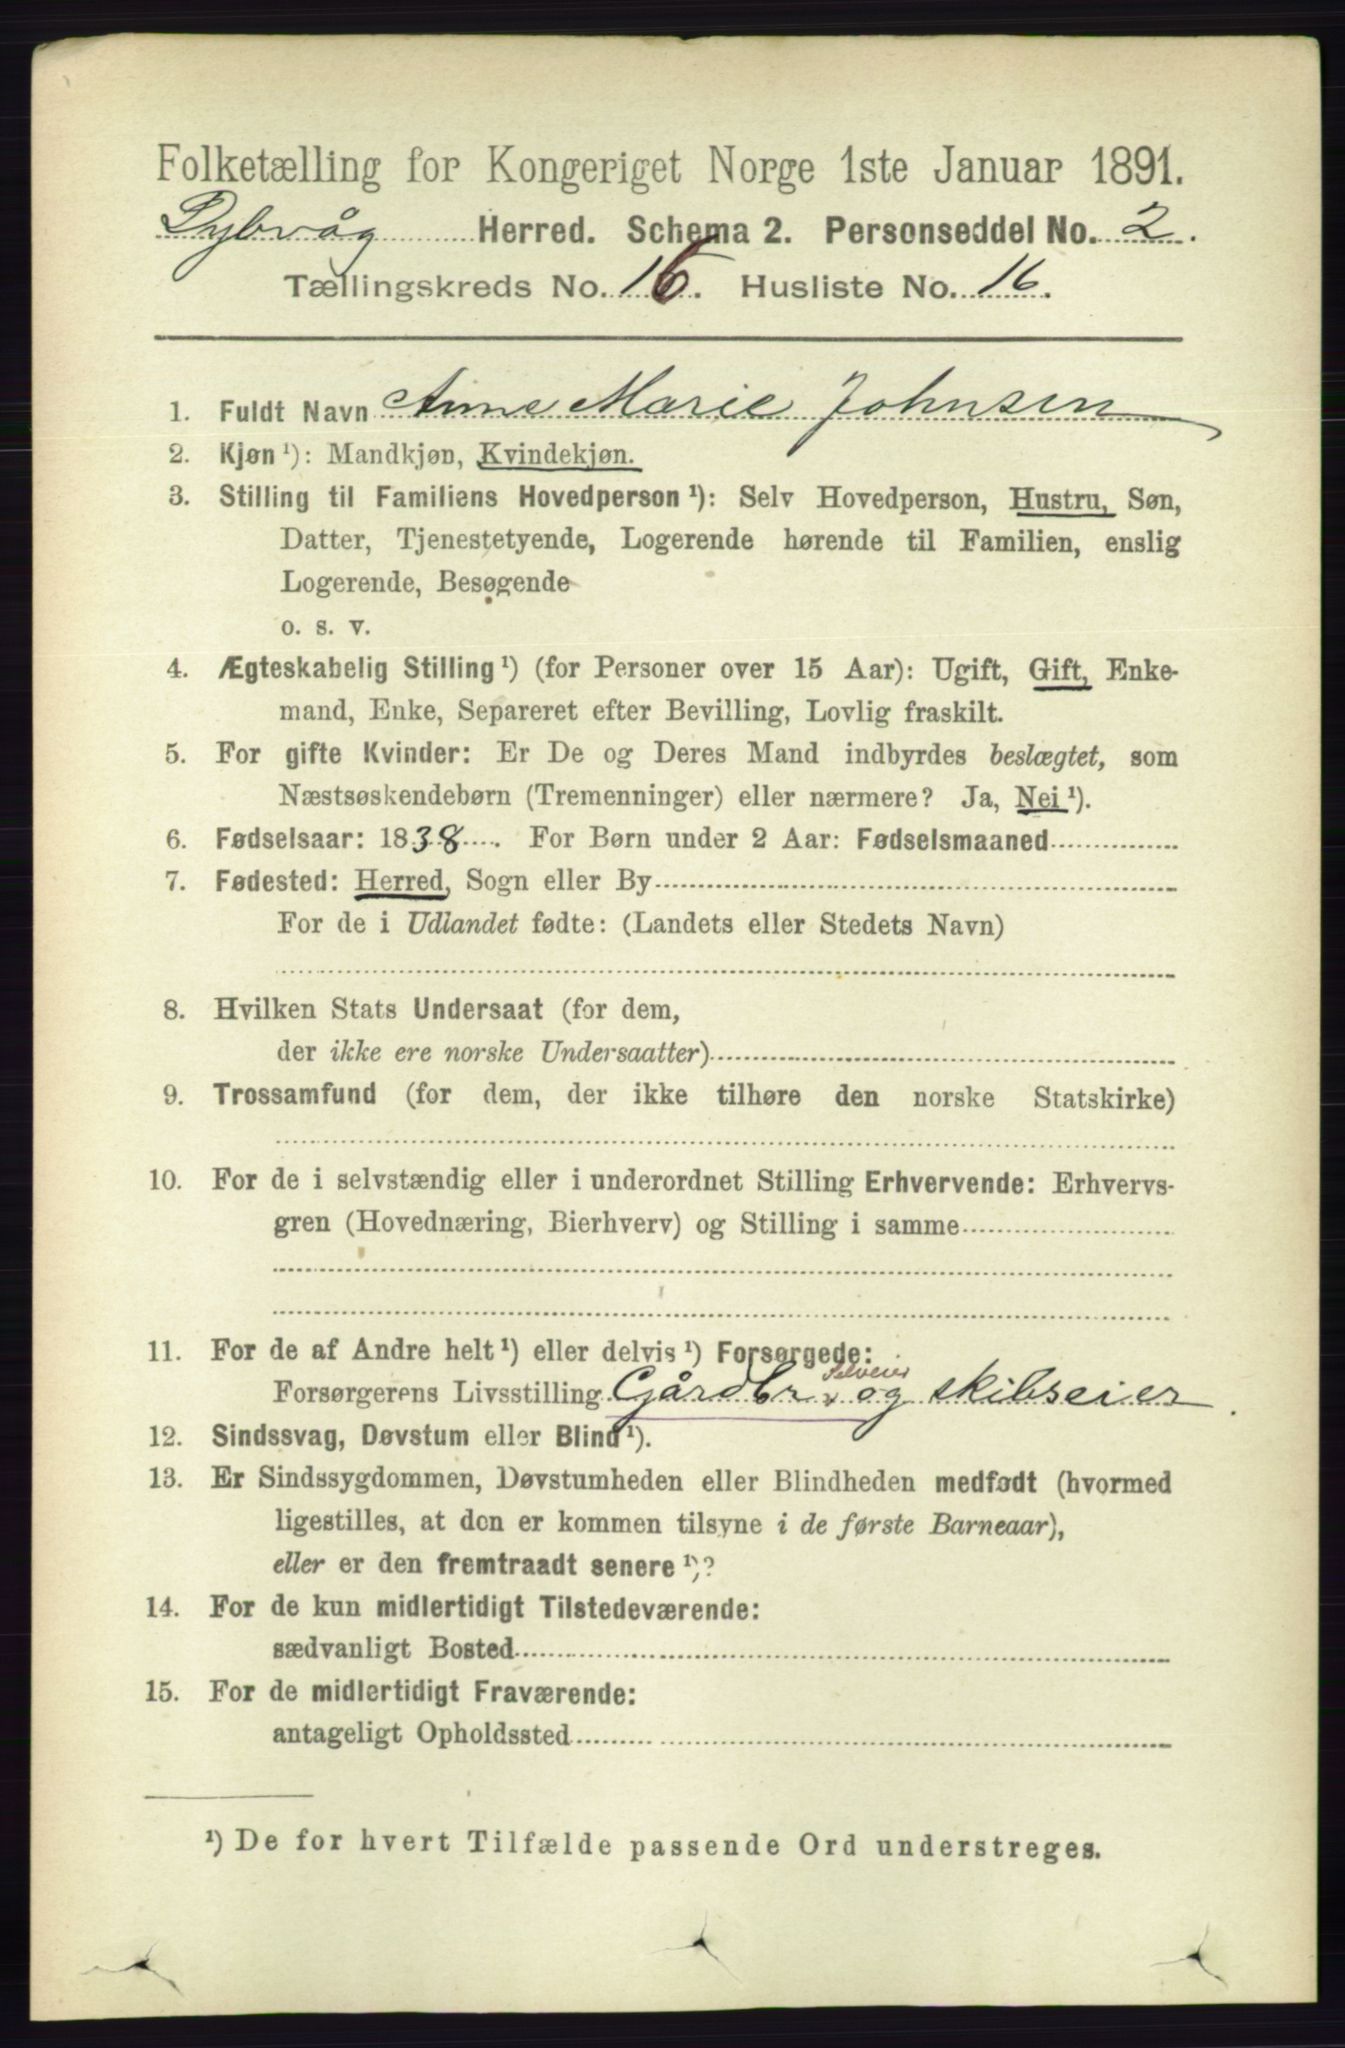 Folketælling for Kongeriget Norge 1ste Januar 1891.
Dybvåg Herred. Schema 2. Personseddel No. 2.
Tællingskreds No. 16. Husliste No. 16.
1. Fuldt Navn Anne Marie Johnsen
2. Kjøn ¹): Mandkjøn, Kvindekjøn.
3. Stilling til Familiens Hovedperson ¹): Selv Hovedperson, Hustru, Søn,
Datter, Tjenestetyende, Logerende hørende til Familien, enslig
Logerende, Besøgende
o. s. v.
4. Ægteskabelig Stilling ¹) (for Personer over 15 Aar): Ugift, Gift, Enke-
mand, Enke, Separeret efter Bevilling, Lovlig fraskilt.
5. For gifte Kvinder: Er De og Deres Mand indbyrdes beslægtet, som
Næstsøskendebørn (Tremenninger) eller nærmere? Ja, Nei ¹).
6. Fødselsaar: 1838. For Børn under 2 Aar: Fødselsmaaned
7. Fødested: Herred, Sogn eller By
For de i Udlandet fødte: (Landets eller Stedets Navn)
8. Hvilken Stats Undersaat (for dem,
der ikke ere norske Undersaatter)
9. Trossamfund (for dem, der ikke tilhøre den norske Statskirke)
10. For de i selvstændig eller i underordnet Stilling Erhvervende: Erhvervs-
gren (Hovednæring, Bierhverv) og Stilling i samme
11. For de af Andre helt ¹) eller delvis ¹) Forsørgede:
Selveier
Forsørgerens Livsstilling Gårdbr og skibseier.
12. Sindssvag, Døvstum eller Blind ¹).
13. Er Sindssygdommen, Døvstumheden eller Blindheden medfødt (hvormed
ligestilles, at den er kommen tilsyne i de første Barneaar),
eller er den fremtraadt senere ¹)?
14. For de kun midlertidigt Tilstedeværende:
sædvanligt Bosted
15. For de midlertidigt Fraværende:
antageligt Opholdssted
¹) De for hvert Tilfælde passende Ord understreges.